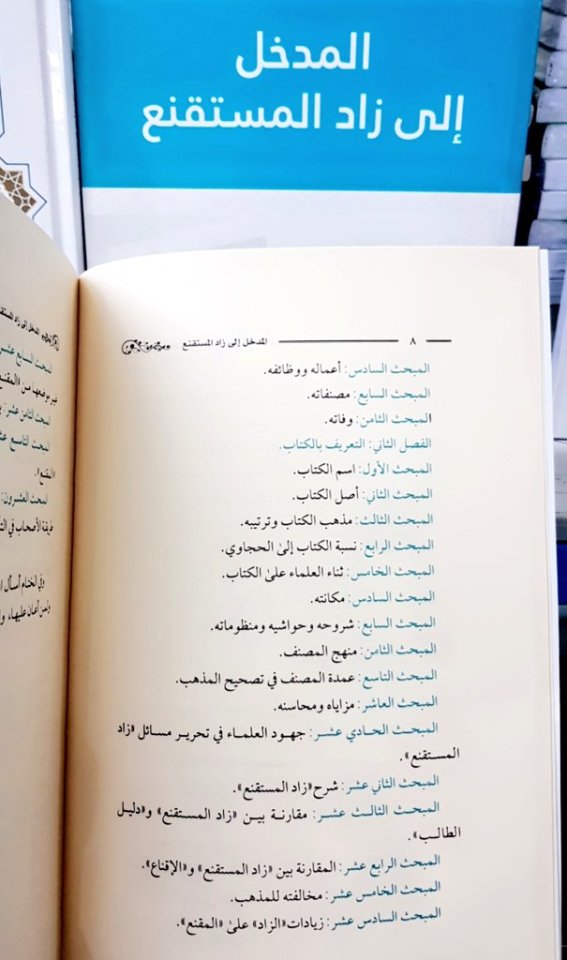 المدخل
إلى زاد المستقنع
٨ المدخل إلى زاد المستقنع
المبحث السادس: أعماله ووظائفه.
المبحث السابع: مصنفاته.
المبحث الثامن: وفاته.
الفصل الثاني: التعريف بالكتاب.
المبحث الأول: اسم الكتاب.
المبحث الثاني: أصل الكتاب.
المبحث الثالث: مذهب الكتاب وترتيبه.
المبحث الرابع: نسبة الكتاب إلىٰ الحجاوي.
المبحث الخامس: ثناء العلماء علىٰ الكتاب.
المبحث السادس: مكانته.
المبحث السابع: شروحه وحواشيه ومنظوماته.
المبحث الثامن: منهج المصنف.
المبحث التاسع: عمدة المصنف في تصحيح المذهب.
المبحث العاشر: مزاياه ومحاسنه.
المبحث الحادي عشر: جهود العلماء في تحرير مسائل «زاد
المستقنع».
المبحث الثاني عشر: شرح «زاد المستقنع».
المبحث الثالث عشر: مقارنة بين «زاد المستقنع» و«دليل
الطالب».
المبحث الرابع عشر: المقارنة بين «زاد المستقنع» و«الإقناع».
المبحث الخامس عشر: مخالفته للمذهب.
المبحث السادس عشر: زيادات «الزاد» علىٰ «المقنع».
المدخل إلى زاد
المبحث السابع عشر
غير موضعها من «المقنع
المبحث الثامن عشر:
المبحث التاسع
المقنع».
المبحث العشرون:
طريقة الأصحاب في
وفي الختام أسأل
ولمن أعان عليها،